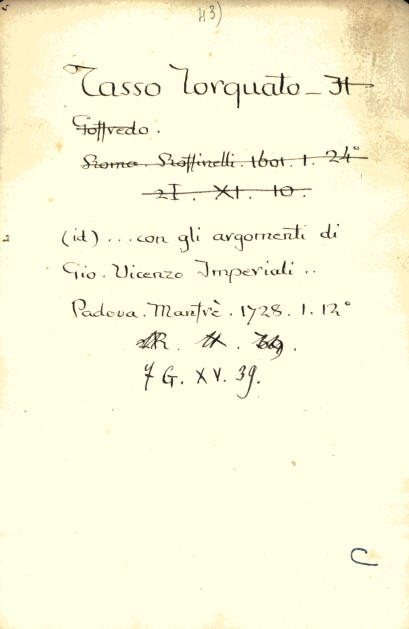 43)
Tasso Torquato
Goffredo.
Roma. Roffinelli. 1601. 1. 24°
2I. XI. 10.
(id)...con gli argomenti di
Gio. Vicenzo Imperiali..
Padova. Manfrè. 1728. 1. 12°
7 G. XV. 39.
C